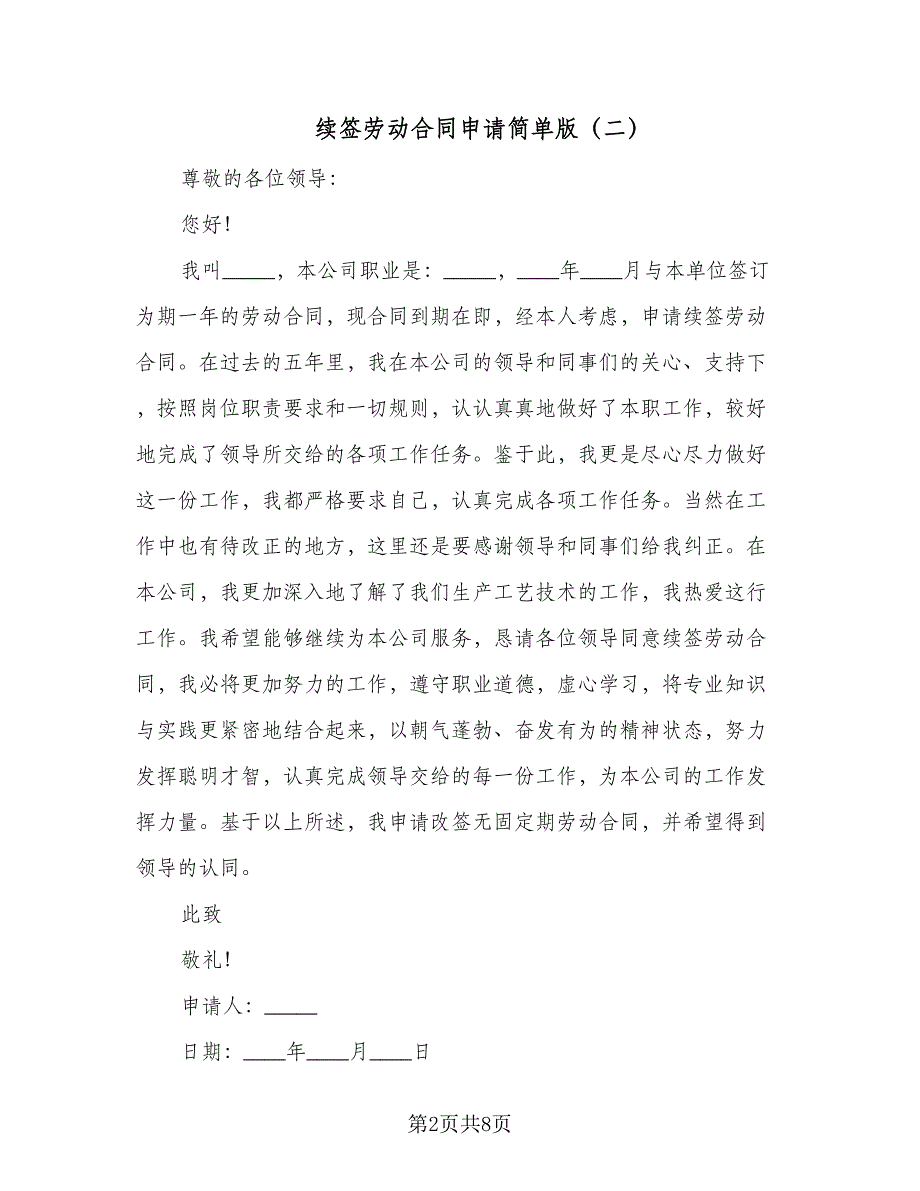 续签劳动合同申请简单版（二）
尊敬的各位领导：
您好！
我叫_____，本公司职业是：_____，____年____月与本单位签订
为期一年的劳动合同，现合同到期在即，经本人考虑，申请续签劳动
合同。在过去的五年里，我在本公司的领导和同事们的关心、支持下
，按照岗位职责要求和一切规则，认认真真地做好了本职工作，较好
地完成了领导所交给的各项工作任务。鉴于此，我更是尽心尽力做好
这一份工作，我都严格要求自己，认真完成各项工作任务。当然在工
作中也有待改正的地方，这里还是要感谢领导和同事们给我纠正。在
本公司，我更加深入地了解了我们生产工艺技术的工作，我热爱这行
工作。我希望能够继续为本公司服务，恳请各位领导同意续签劳动合
同，我必将更加努力的工作，遵守职业道德，虚心学习，将专业知识
与实践更紧密地结合起来，以朝气蓬勃、奋发有为的精神状态，努力
发挥聪明才智，认真完成领导交给的每一份工作，为本公司的工作发
挥力量。基于以上所述，我申请改签无固定期劳动合同，并希望得到
领导的认同。
此致
敬礼！
申请人：_____
日期：____年____月____日
第2页共8页